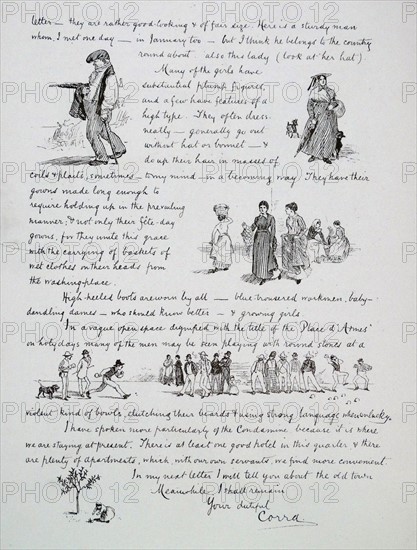 letter — they are rather good-looking & of fair size. Here is a sturdy man
whom I met one day — in January too — but I think he belongs to the country
round about also this lady (look at her hat)
Many of the girls have
substantial plump figures
and a few have features of a
high type. They often dress
neatly — generally go out
without hat or bonnet — &
do up their hair in masses of
coils & plaits, sometimes — to my mind — in a becoming way. They have their
gowns made long enough to
require holding up in the prevailing
manner, & not only their fête-day
gowns, for they unite this grace
with the carrying of baskets of
wet clothes on their heads from
the washing place.
High-heeled boots are worn by all — blue-trousered workmen, baby-
dandling dames — who should know better — & growing girls
In a vague open space dignified with the title of the 'Place d'Armes'
on holydays many of the men may be seen playing with round stones at a
violent kind of bowls, clutching their beards & using strong language when unlucky.
I have spoken more particularly of the Condamine because it is where
we are staying at present. There is at least one good hotel in this quarter & there
are plenty of apartments, which, with our own servants, we find more convenient.
In my next letter I will tell you about the old town
Meanwhile I shall remain
Your dutiful
Corra
PHOTO12